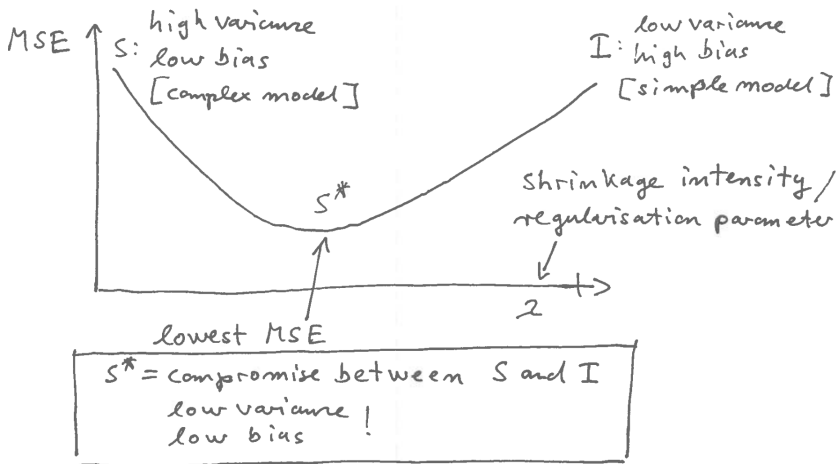 MSE
S: high variance
low bias
[complex model]
I: low variance
high bias
[simple model]
S*
Shrinkage intensity/
regularisation parameter
λ
lowest MSE
S* = compromise between S and I
low variance
low bias !